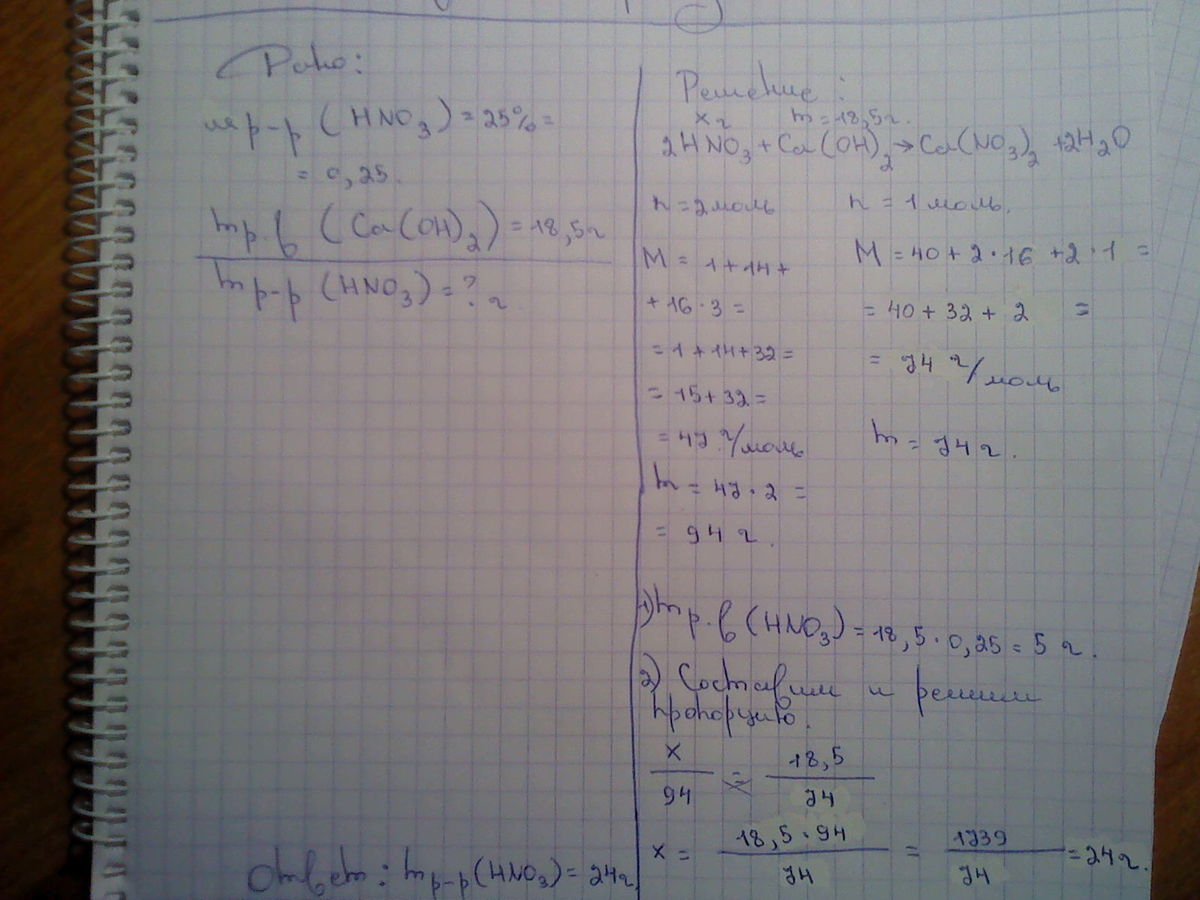 Дано:
мр-р (HNO3) = 25% =
= 0,25.
mр.в (Ca(OH)2) = 18,5г
mр-р (HNO3) = ? г
Решение:
xг m = 18,5г.
2HNO3 + Ca(OH)2 → Ca(NO3)2 + 2H2O
n = 2моль n = 1моль.
M = 1 + 14 +
+ 16·3 =
= 1 + 14 + 32 =
= 15 + 32 =
= 47 г/моль
m = 47·2 =
= 94 г.
M = 40 + 2·16 + 2·1 =
= 40 + 32 + 2 =
= 74 г/моль
m = 74г.
1) mр.в (HNO3) = 18,5·0,25 = 5 г.
2) Составим и решим
пропорцию.
x/94 = 18,5/74
x = 18,5·94/74 = 1739/74 = 24г.
Ответ: mр-р (HNO3) = 24г.